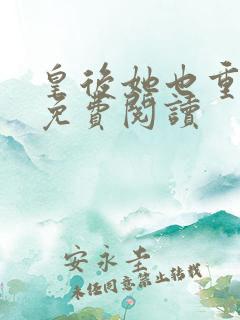 皇後她也重
免費閱讀
安永圭
未經同意禁止轉載